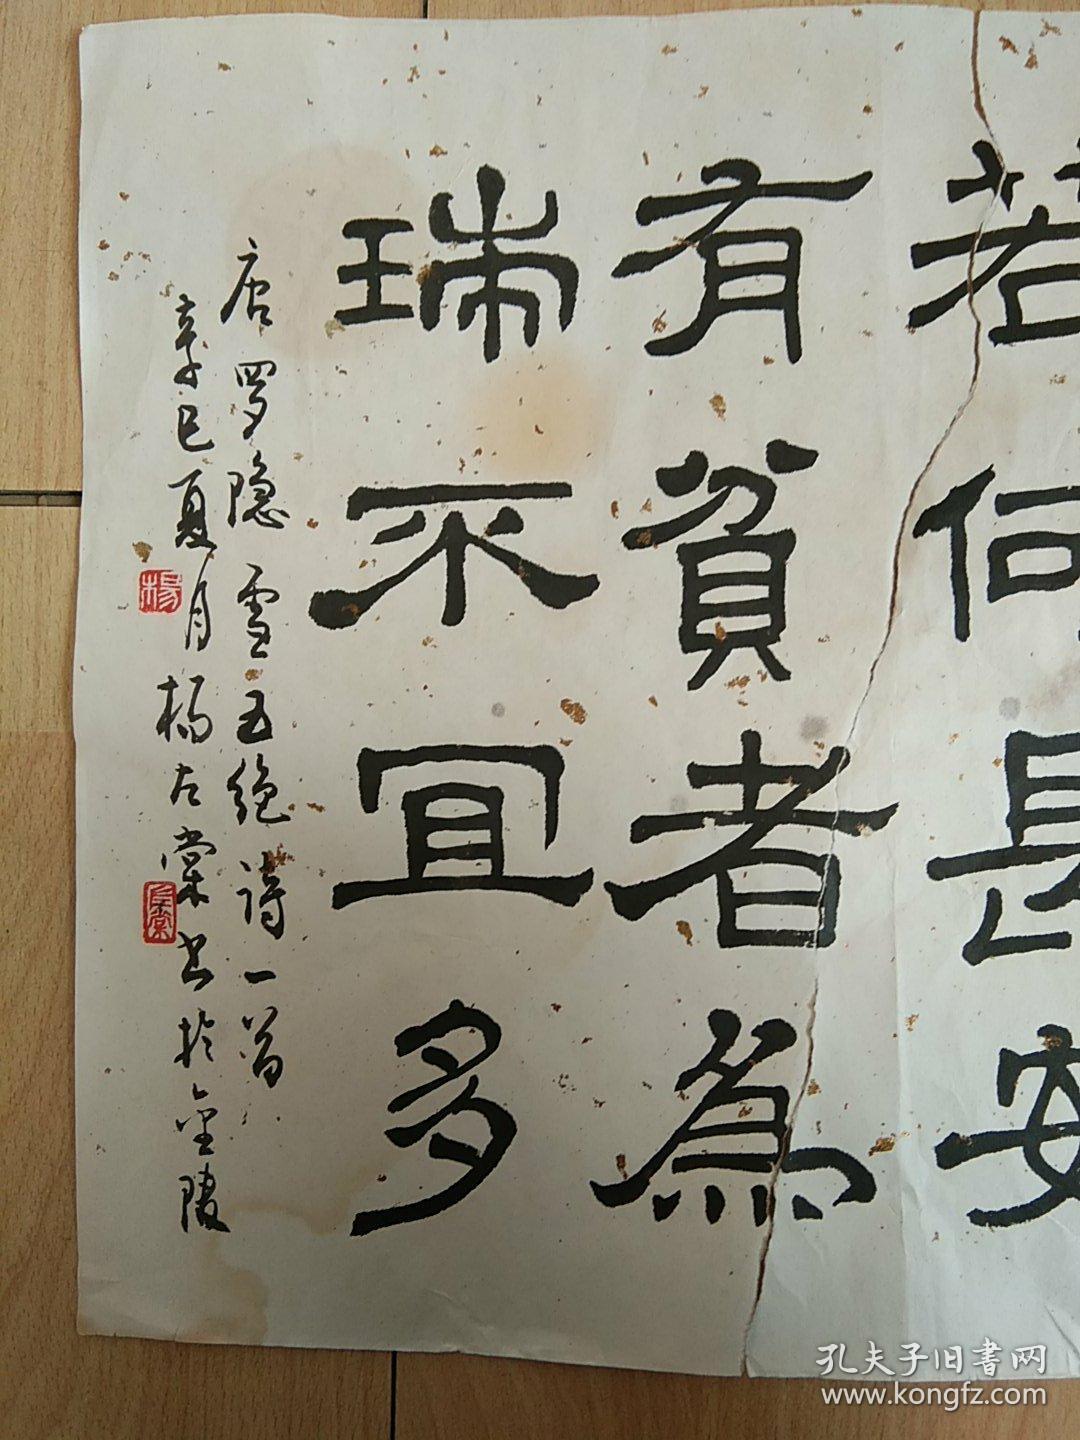 若何長安
有貧者為
瑞不宜多
唐罗隐雪五绝诗一首
辛巳夏月杨左棠书於金陵
楊
左棠
孔夫子旧書网
www.kongfz.com